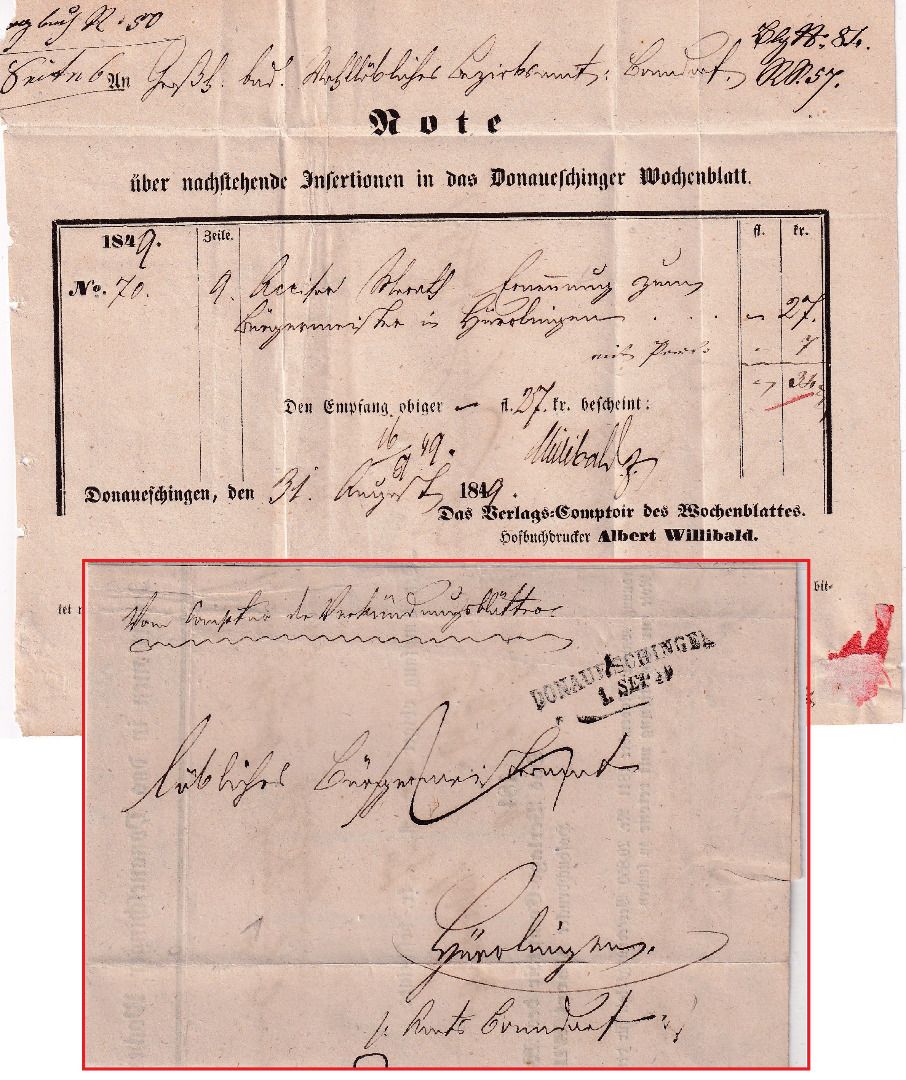 No. 50
Blg No. 84.
Seite 6
An Großh. bad. Wohllöbliches Bezirksamt: Bonndorf.
No. 57.
Note
über nachstehende Insertionen in das Donaueschinger Wochenblatt.
1849. Zeile. fl. kr.
No. 70. 9. Accisor Ernennung zum
Bürgermeister in Hürrlingen . . . – 27.
7
34
Den Empfang obiger – fl. 27. kr. bescheint:
16/9 49. Willibald
Donaueschingen, den 31. August 1849.
Das Verlags-Comptoir des Wochenblattes.
Hofbuchdrucker Albert Willibald.
bit-
tet
Vom Comptoir des Verkündungsblattes
DONAUESCHINGEN
1. SEP 49
Löbliches Bürgermeisteramt
Hürrlingen.
/: Amts Bonndorf :/